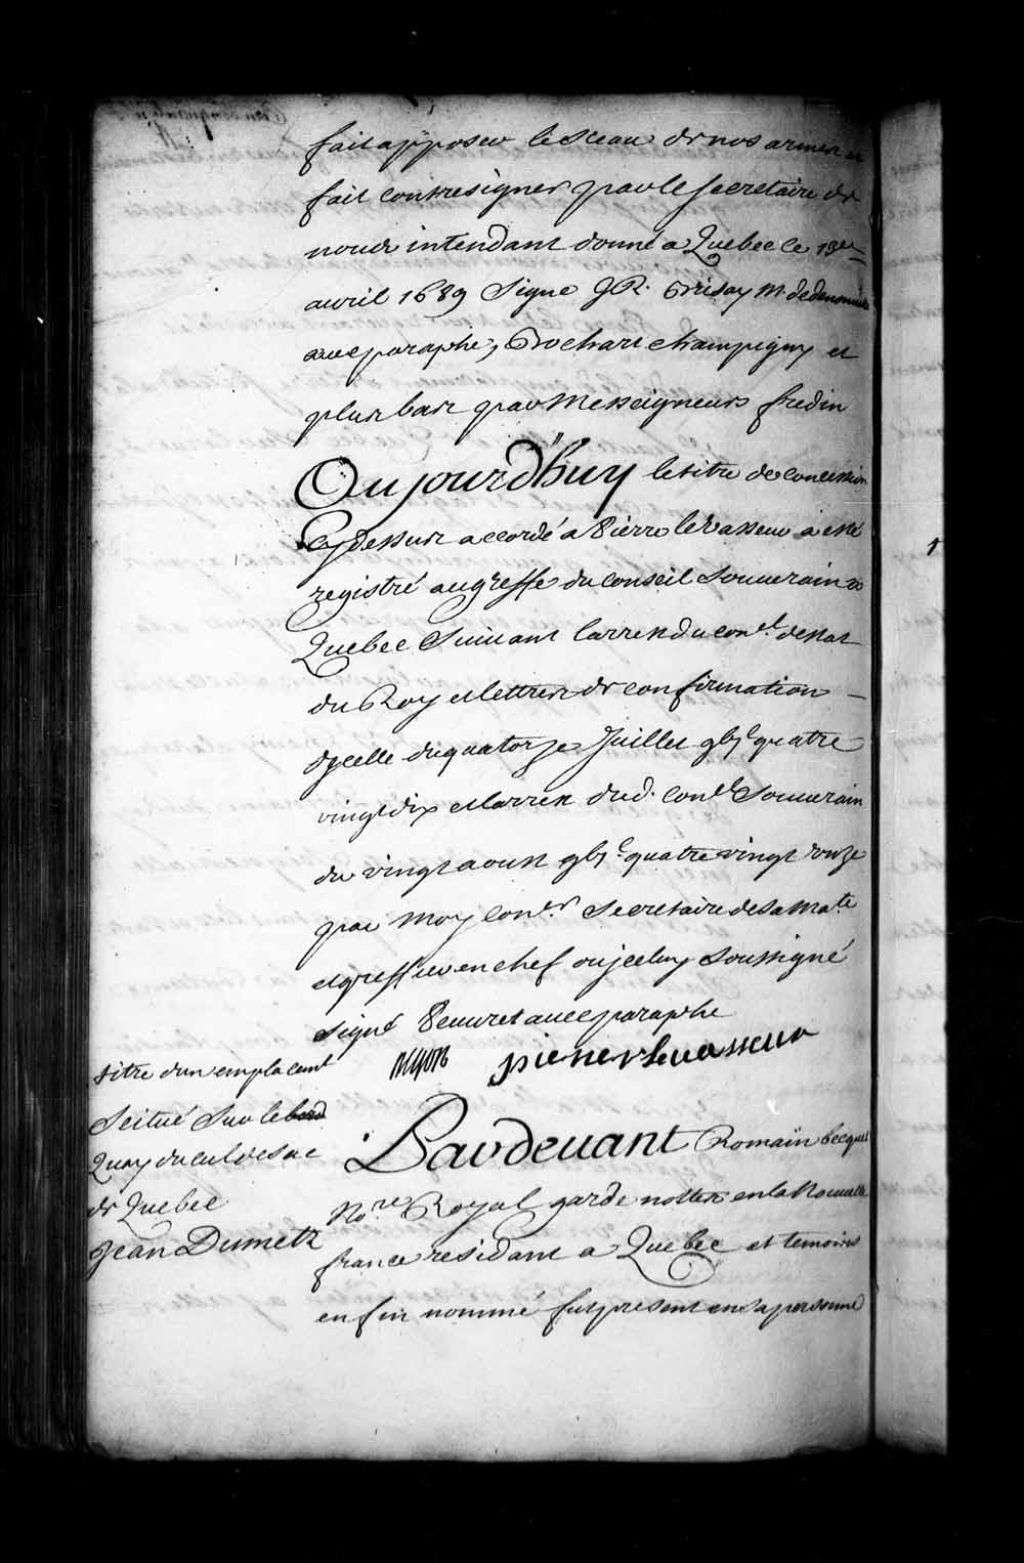 fait apposer le Sceau de nos armes et
fait contresigner par le secretaire de
nous intendant donné a Quebec le 13e
auril 1689 Signe J R. Brisay M. de denonuille
auec paraphe, Bochart champigny et
plus bas par Messeigneurs fredin
Aujourd'huy le titre de concession
Cy dessus accordé a Pierre leVasseur a esté
registré au greffe du conseil Souuerain a
Quebec Suiuant larrest du conel. destat
du Roy et lettres de confirmation
dycelle du quatorze Juillet gbjc quatre
vingt dix et larrest dud. conel Souuerain
du vingt aoust gbjc quatre vingt onze
par moy coner. Secretaire de Sa Mate.
et greffier en chef en jceluy Soussigné
signé Peuuret auec paraphe
pierre leuasseur
titre dun emplacemt
Scitué Sur le bord
Quay du cul de sac
de Quebec
Jean Dumetz
Pardeuant Romain becquet
Nore. Royal garde nottes en la Nouuelle
france residant a Quebec et temoins
en fin nommé fut present en sa personne